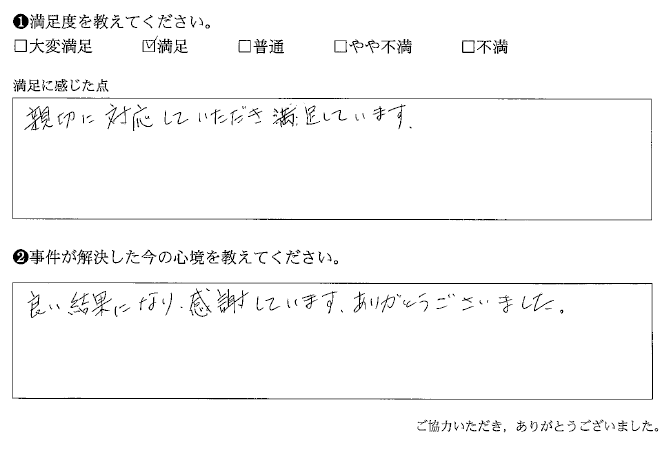 ❶満足度を教えてください。
□大変満足 ☑満足 □普通 □やや不満 □不満
満足に感じた点
親切に対応していただき満足しています.
❷事件が解決した今の心境を教えてください。
良い結果になり、感謝しています、ありがとうございました。
ご協力いただき，ありがとうございました。